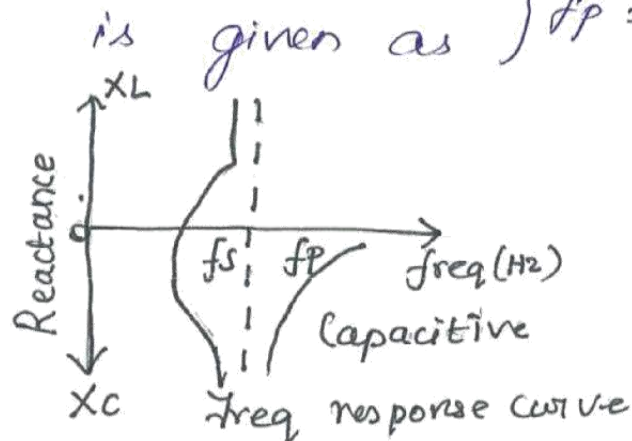 is given as ) fp =
XL
Reactance
0
fs
fp
freq (Hz)
Capacitive
XC
Freq response curve